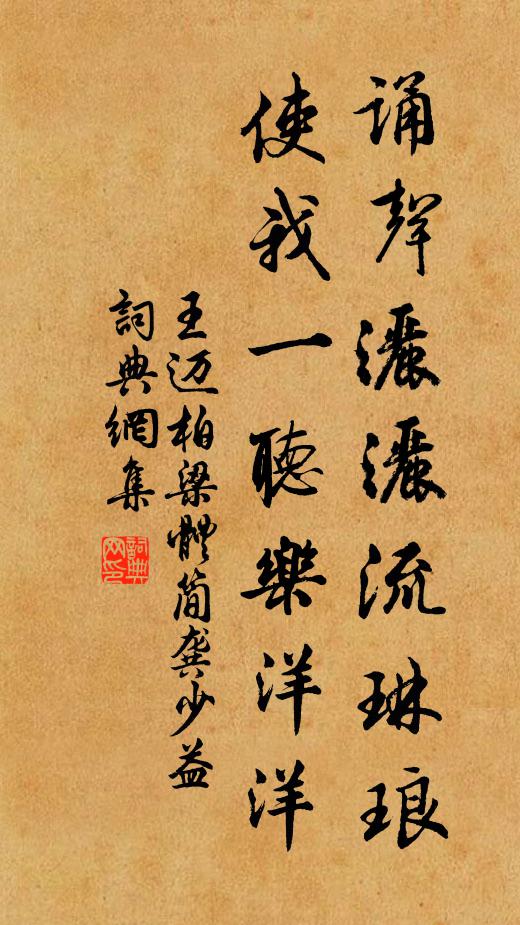 誦聲灑灑流琳琅
使我一聽樂洋洋
王迈柏梁體简龚少益
詞典網集
詞典网印